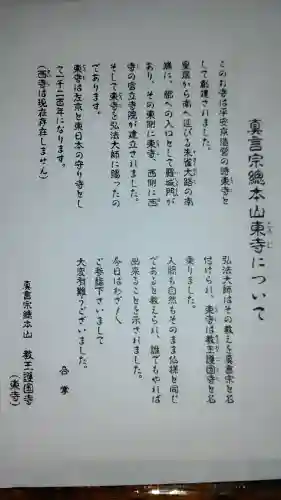 真言宗總本山東寺について
このお寺は平安京造営の時東寺と
して創建されました。
皇居から南へ延びる朱雀大路の南
端に、都への入口として羅城門が
あり、その東側に東寺、西側に西
寺の官立寺院が建立されました。
そして東寺を弘法大師に賜ったの
であります。
東寺は左京と東日本の守り寺とし
て一千二百年になります。
(西寺は現在存在しません)
弘法大師はその教えを真言宗と名
付けられ、東寺は教王護国寺と名
乗りました。
人間も自然もそのまま仏様と同じ
であると教えられ、誰でもやれば
出来ることを示されました。
今日はわざ〳〵
ご参詣下さいまして
大変有難うございました。
合掌
真言宗總本山 教王護国寺
(東寺)